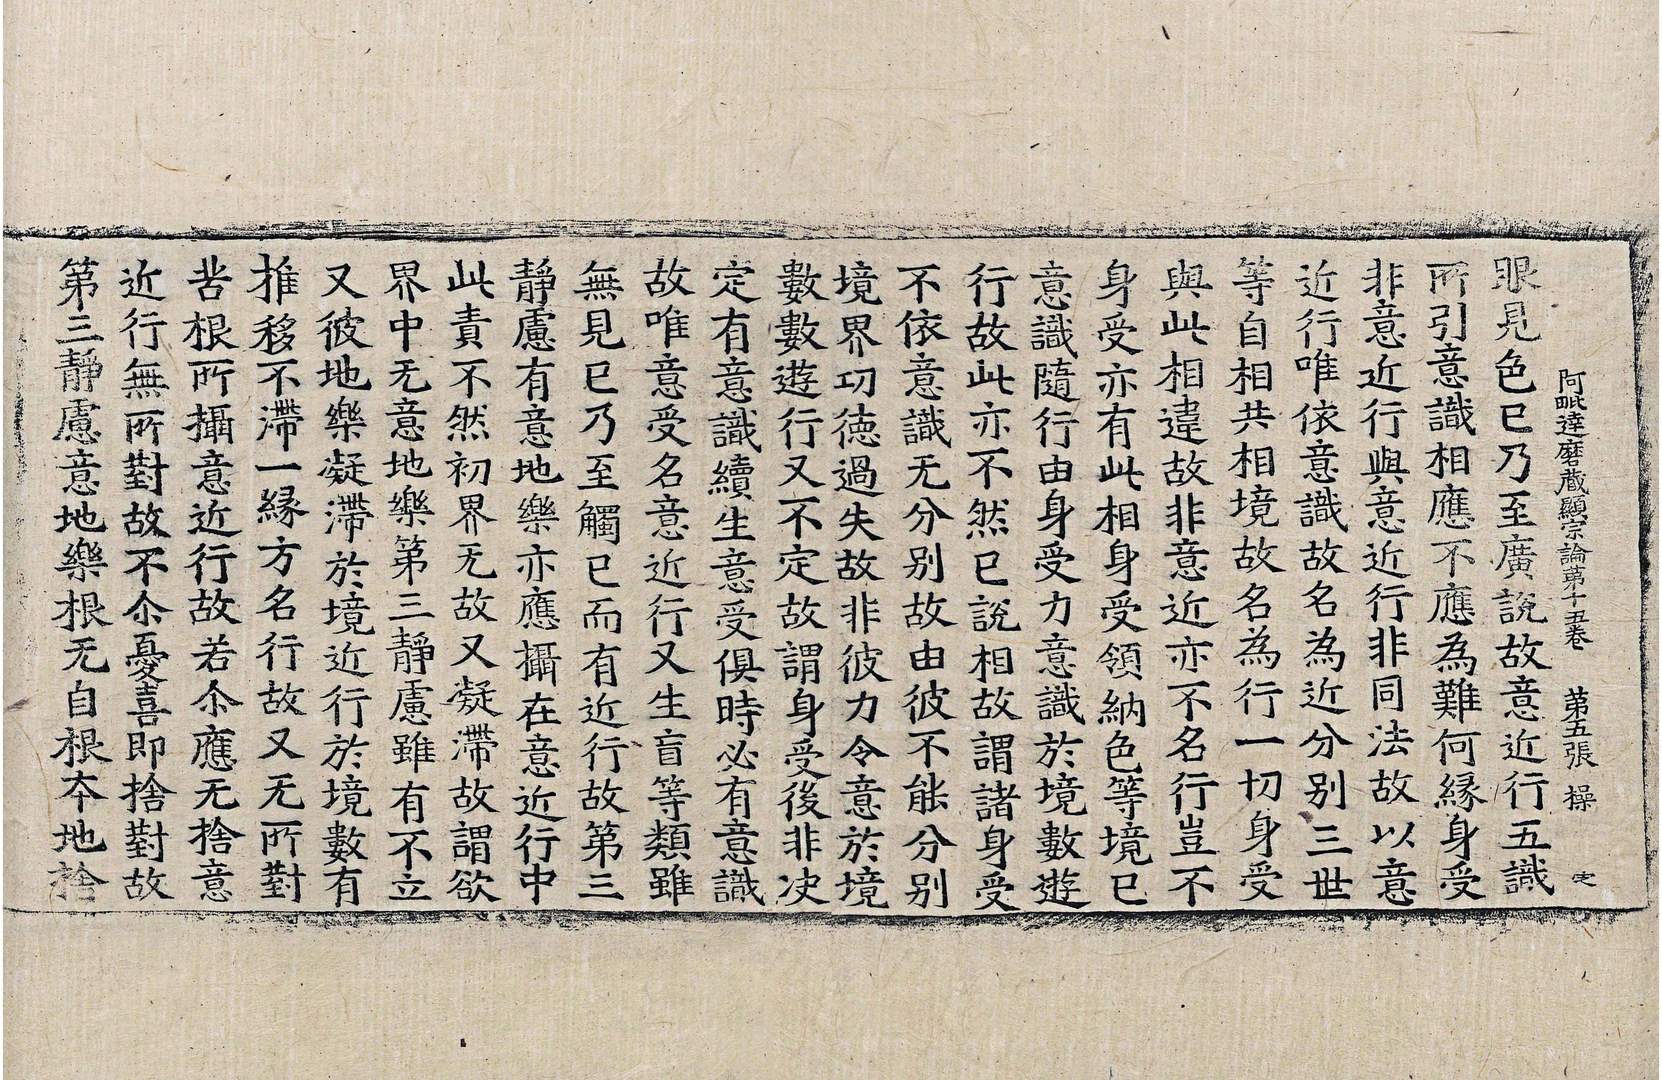 阿毗達磨藏顯宗論第十五卷 第五張 操
眼見色已乃至廣說故意近行五識
所引意識相應不應為難何緣身受
非意近行與意近行非同法故以意
近行唯依意識故名為近分別三世
等自相共相境故名為行一切身受
與此相違故非意近亦不名行豈不
身受亦有此相身受領納色等境已
意識隨行由身受力意識於境數遊
行故此亦不然已說相故謂諸身受
不依意識无分別故由彼不能分別
境界功德過失故非彼力令意於境
數數遊行又不定故謂身受後非决
定有意識續生意受俱時必有意識
故唯意受名意近行又生盲等類雖
無見已乃至觸已而有近行故第三
靜慮有意地樂亦應攝在意近行中
此責不然初界无故又凝滯故謂欲
界中无意地樂第三靜慮雖有不立
又彼地樂凝滯於境近行於境數有
推移不滯一緣方名行故又无所對
苦根所攝意近行故若尒應无捨意
近行無所對故不尒憂喜即捨對故
第三靜慮意地樂根无自根夲地捨